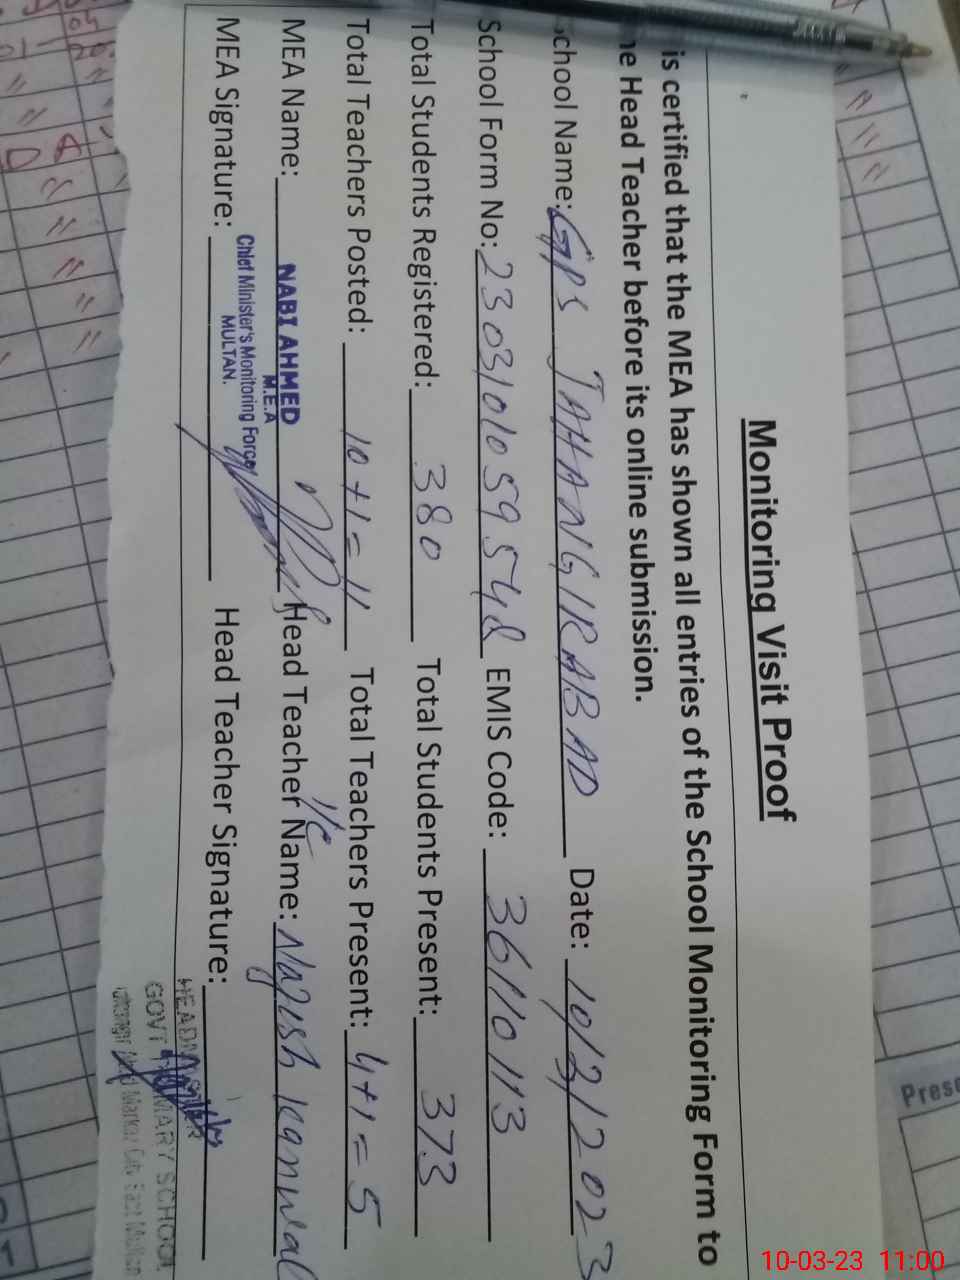 Monitoring Visit Proof
is certified that the MEA has shown all entries of the School Monitoring Form to
he Head Teacher before its online submission.
chool Name: GPS JAHANGIRABAD Date: 10/3/2023
School Form No: EMIS Code: 36110113
Total Students Registered: 380 Total Students Present: 373
Total Teachers Posted: 10+1=11 Total Teachers Present: 4+1=5
MEA Name: NABI AHMED Head Teacher I/C Name: Nazish Kanwal
M.E.A
Chief Minister's Monitoring Force
MULTAN.
MEA Signature: Head Teacher Signature:
GOVT PRIMARY SCHOOL
Prese
10-03-23 11:00